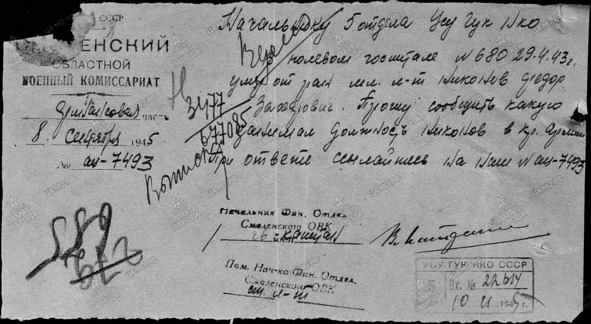 СССР
ЕНСКИЙ
ОБЛАСТНОЙ
ВОЕННЫЙ КОМИССАРИАТ
Финансовая часть
8 сентября 1945
№ ан-7493
Начальнику 5 отдела Усу Гук Нко
В полевом госпитале № 680 29.4.43г.
умер от ран мл. л-т Никонов Федор
Захарович. Прошу сообщить какую
занимал должность Никонов в кр. Армии
При ответе ссылайтесь на наш № ан-7493
677085
589
Начальник Фин. Отдела
Смоленского ОВК
капитан
Пом. Нач-ка Фин. Отдел.
Смоленского ОВК
ст. л-т
УСУ ГУК НКО СССР
Вх. №
10
194